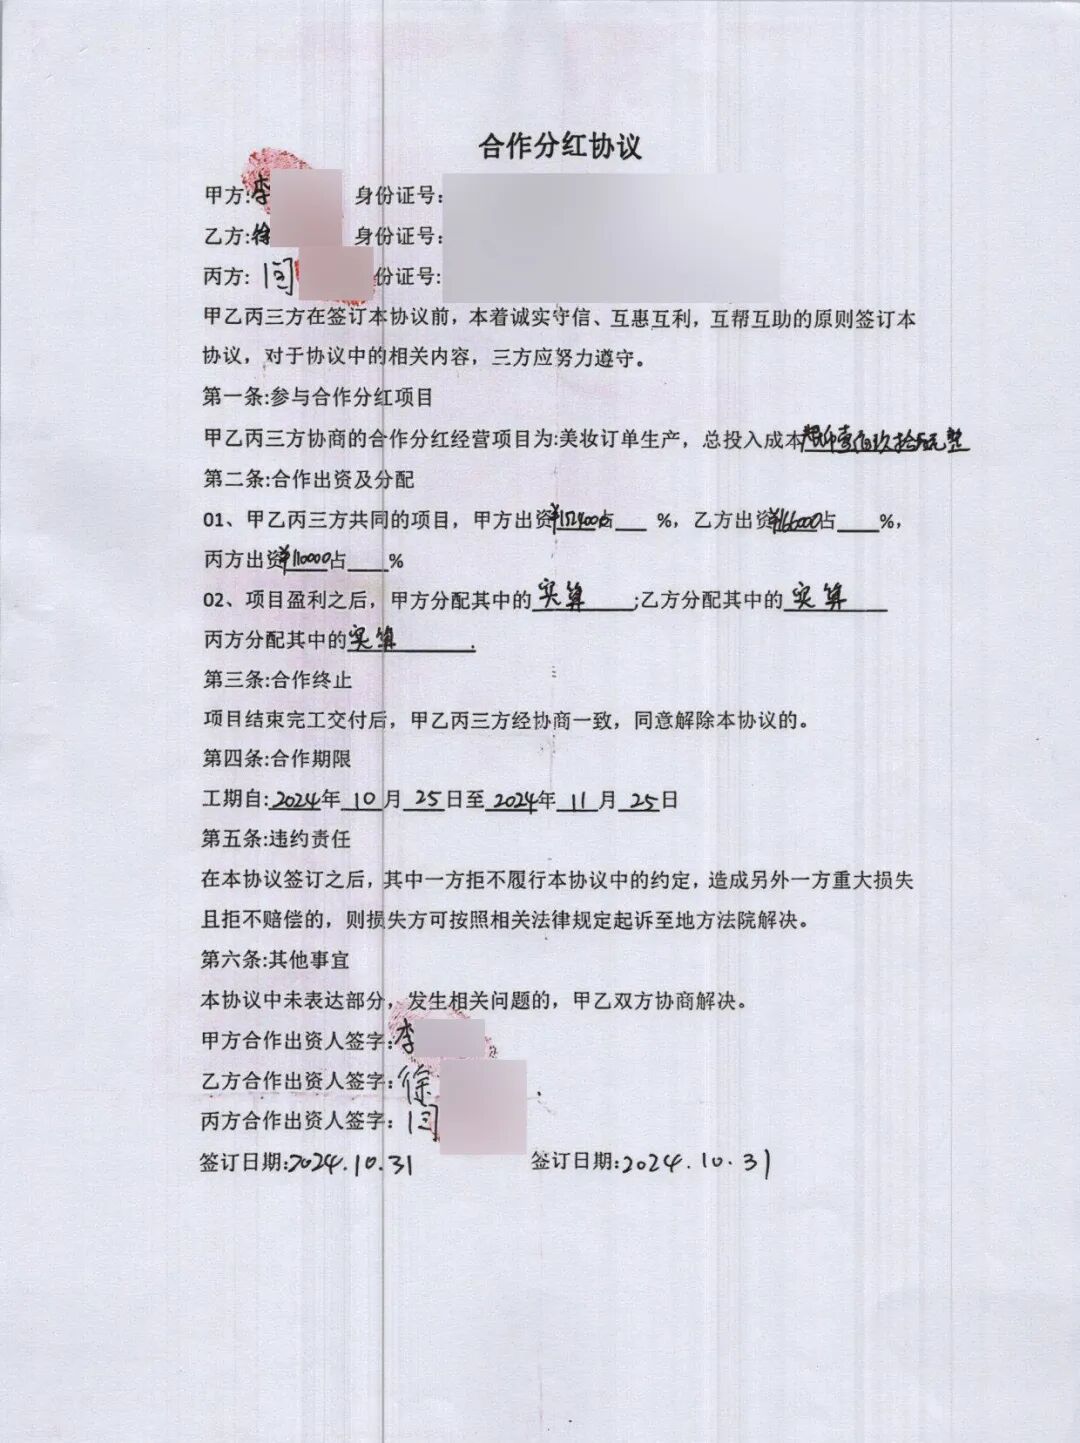 合作分红协议
甲方:李 身份证号:
乙方:徐 身份证号:
丙方: 闫 份证号:
甲乙丙三方在签订本协议前，本着诚实守信、互惠互利，互帮互助的原则签订本
协议，对于协议中的相关内容，三方应努力遵守。
第一条:参与合作分红项目
甲乙丙三方协商的合作分红经营项目为:美妆订单生产，总投入成本 仟壹佰玖拾 元整
第二条:合作出资及分配
01、甲乙丙三方共同的项目，甲方出资 占 %，乙方出资¥166000占 %，
丙方出资¥110000占 %
02、项目盈利之后，甲方分配其中的 实算 ;乙方分配其中的 实算
丙方分配其中的实算 .
第三条:合作终止
项目结束完工交付后，甲乙丙三方经协商一致，同意解除本协议的。
第四条:合作期限
工期自:2024年 10 月 25 日至 2024年 11 月 25 日
第五条:违约责任
在本协议签订之后，其中一方拒不履行本协议中的约定，造成另外一方重大损失
且拒不赔偿的，则损失方可按照相关法律规定起诉至地方法院解决。
第六条:其他事宜
本协议中未表达部分，发生相关问题的，甲乙双方协商解决。
甲方合作出资人签字:李
乙方合作出资人签字:徐
丙方合作出资人签字: 闫
签订日期:2024.10.31 签订日期:2024.10.31